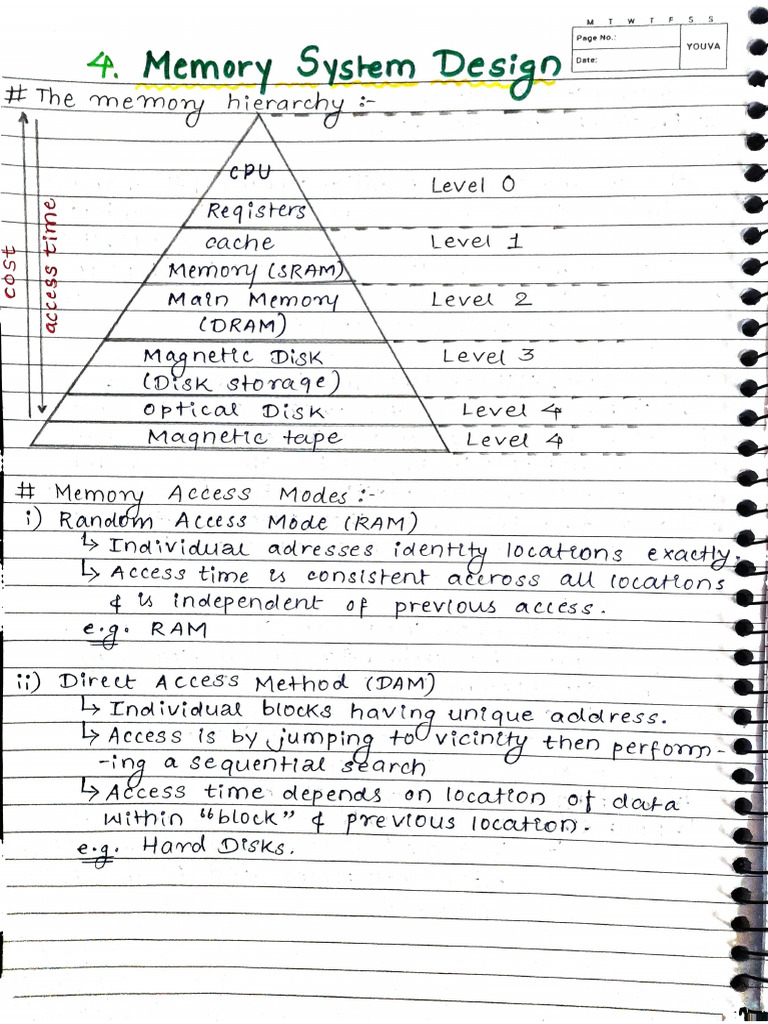 M T W T F S S
Page No.:
YOUVA
Date:
4. Memory System Design
# The memory hierarchy :-
CPU
Level 0
Registers
cache
Level 1
Memory (SRAM)
Main Memory
Level 2
(DRAM)
Magnetic Disk
Level 3
(Disk storage)
Optical Disk
Level 4
Magnetic tape
Level 4
cost
access time
# Memory Access Modes :-
i) Random Access Mode (RAM)
↳ Individual adresses identity locations exactly.
↳ Access time is consistent accross all locations
& is independent of previous access.
e.g. RAM
ii) Direct Access Method (DAM)
↳ Individual blocks having unique address.
↳ Access is by jumping to vicinity then perform-
-ing a sequential search
↳ Access time depends on location of data
within "block" & previous location.
e.g. Hard Disks.